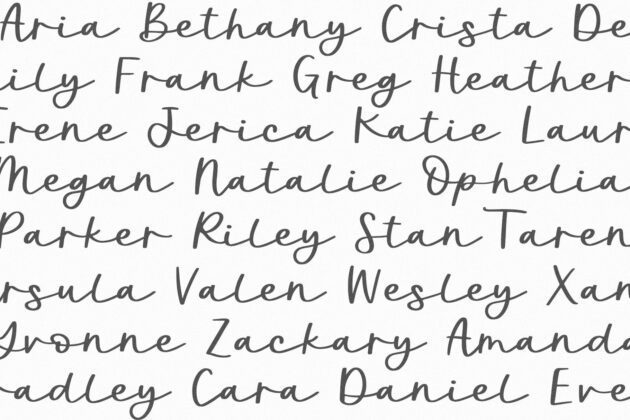 Aria Bethany Crista De
ily Frank Greg Heather
Irene Jerica Katie Laur
Megan Natalie Ophelia
Parker Riley Stan Taren
rsula Valen Wesley Xan
Yvonne Zackary Amanda
radley Cara Daniel Eve